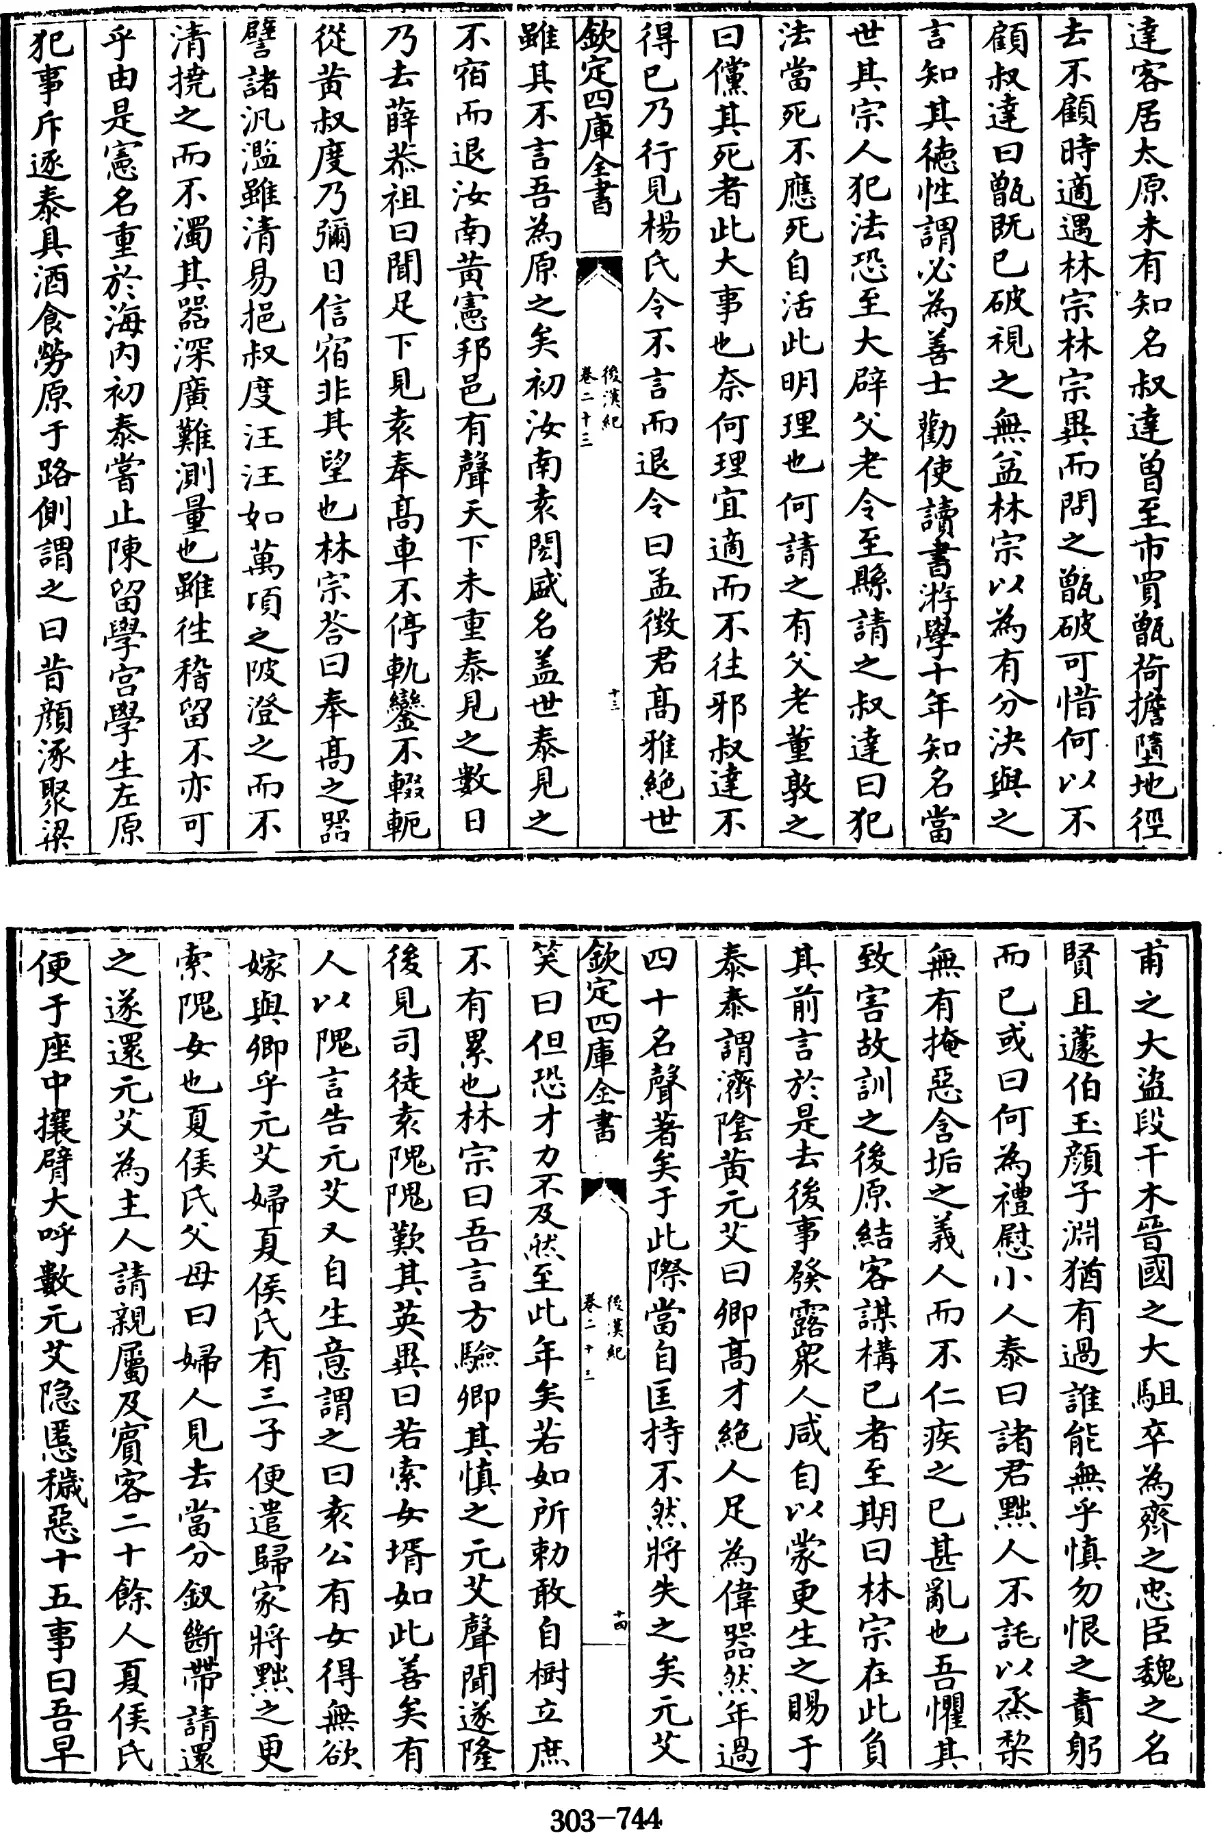 達客居太原未有知名叔達曽至市買甑荷擔墮地徑
去不顧時適遇林宗林宗異而問之甑破可惜何以不
顧叔達曰甑既已破視之無益林宗以為有分決與之
言知其徳性謂必為善士勸使讀書游學十年知名當
世其宗人犯法恐至大辟父老令至縣請之叔達曰犯
法當死不應死自活此明理也何請之有父老董敦之
曰儻其死者此大事也奈何理宜適而不往邪叔達不
得已乃行見楊氏令不言而退令曰孟徴君髙雅絶世
欽定四庫全書
後漢紀
卷二十三
十三
雖其不言吾為原之矣初汝南袁閎盛名蓋世泰見之
不宿而退汝南黄憲邦邑有聲天下未重泰見之數日
乃去薛恭祖曰聞足下見袁奉髙車不停軌鑾不輟軛
從黄叔度乃彌日信宿非其望也林宗荅曰奉髙之器
譬諸汎濫雖清易挹叔度汪汪如萬頃之陂澄之而不
清撓之而不濁其器深廣難測量也雖徃稽留不亦可
乎由是憲名重於海内初泰嘗止陳留學宫學生左原
犯事斥逐泰具酒食勞原于路側謂之曰昔顔涿聚梁
甫之大盗段干木晉國之大駔卒為齊之忠臣魏之名
賢且蘧伯玉顔子淵猶有過誰能無乎慎勿恨之責躬
而已或曰何為禮慰小人泰曰諸君黜人不託以烝棃
無有掩惡含垢之義人而不仁疾之已甚亂也吾懼其
致害故訓之後原結客謀構已者至期曰林宗在此負
其前言於是去後事發露衆人咸自以蒙更生之賜于
泰泰謂濟隂黄元艾曰卿髙才絶人足為偉器然年過
四十名聲著矣于此際當自匡持不然將失之矣元艾
欽定四庫全書
後漢紀
卷二十三
十四
笑曰但恐才力不及然至此年矣若如所勅敢自樹立庶
不有累也林宗曰吾言方驗卿其慎之元艾聲聞遂隆
後見司徒袁隗隗歎其英異曰若索女壻如此善矣有
人以隗言告元艾又自生意謂之曰袁公有女得無欲
嫁與卿乎元艾婦夏侯氏有三子便遣歸家將黜之更
索隗女也夏侯氏父母曰婦人見去當分釵斷帶請還
之遂還元艾為主人請親屬及賔客二十餘人夏侯氏
便于座中攘臂大呼數元艾隐慝穢惡十五事曰吾早
303-744